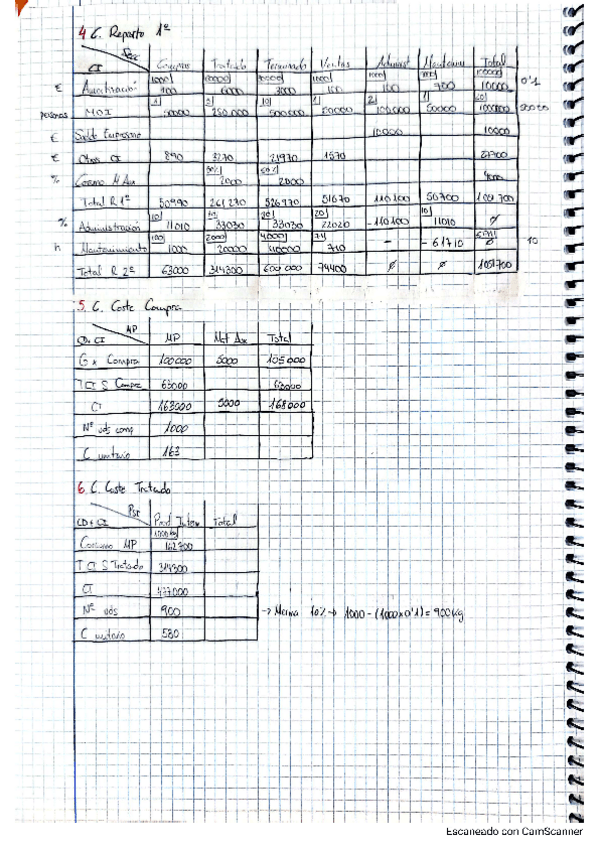 4 C. Reparto 1º
Secc
CI Compras Tratado Terminado Ventas Administ Mantenim Total
€ Amortización 100 6000 3000 100 100 700 10000 0'1
personas MOI 50000 250.000 500000 50000 100,000 50000 1000000 50000
€ 10000 10000
€ Otros CI 890 3270 21970 1570 27700
% Consumo M Aux 50% 2000 50% 2000 4000
Total R 1º 50990 261270 526970 51670 110100 50700 1051700
% Administración 10 11010 30 33030 30 33030 20 22020 -110100 10 11010 ∅
h Mantenimiento 100 1000 2000 20000 4000 40000 71 710 - -61710 ∅ 10
Total R 2º 63000 314300 600 000 74400 ∅ ∅ 1051700
5. C. Coste Compra
MP
CD+CI MP Mat Aux Total
G x Compra 100000 5000 105000
T CI S Compra 63000 63000
CT 163000 5000 168000
Nº uds comp 1000
C unitario 163
6. C. Coste Tratado
CD+CI Prod Interm Total
Consumo MP 162700
T CI S Tratado 314300
CT 477000
Nº uds 900 → Merma 10% → 1000 - (1000x0'1) = 900 kg
C unitario 530
Escaneado con CamScanner